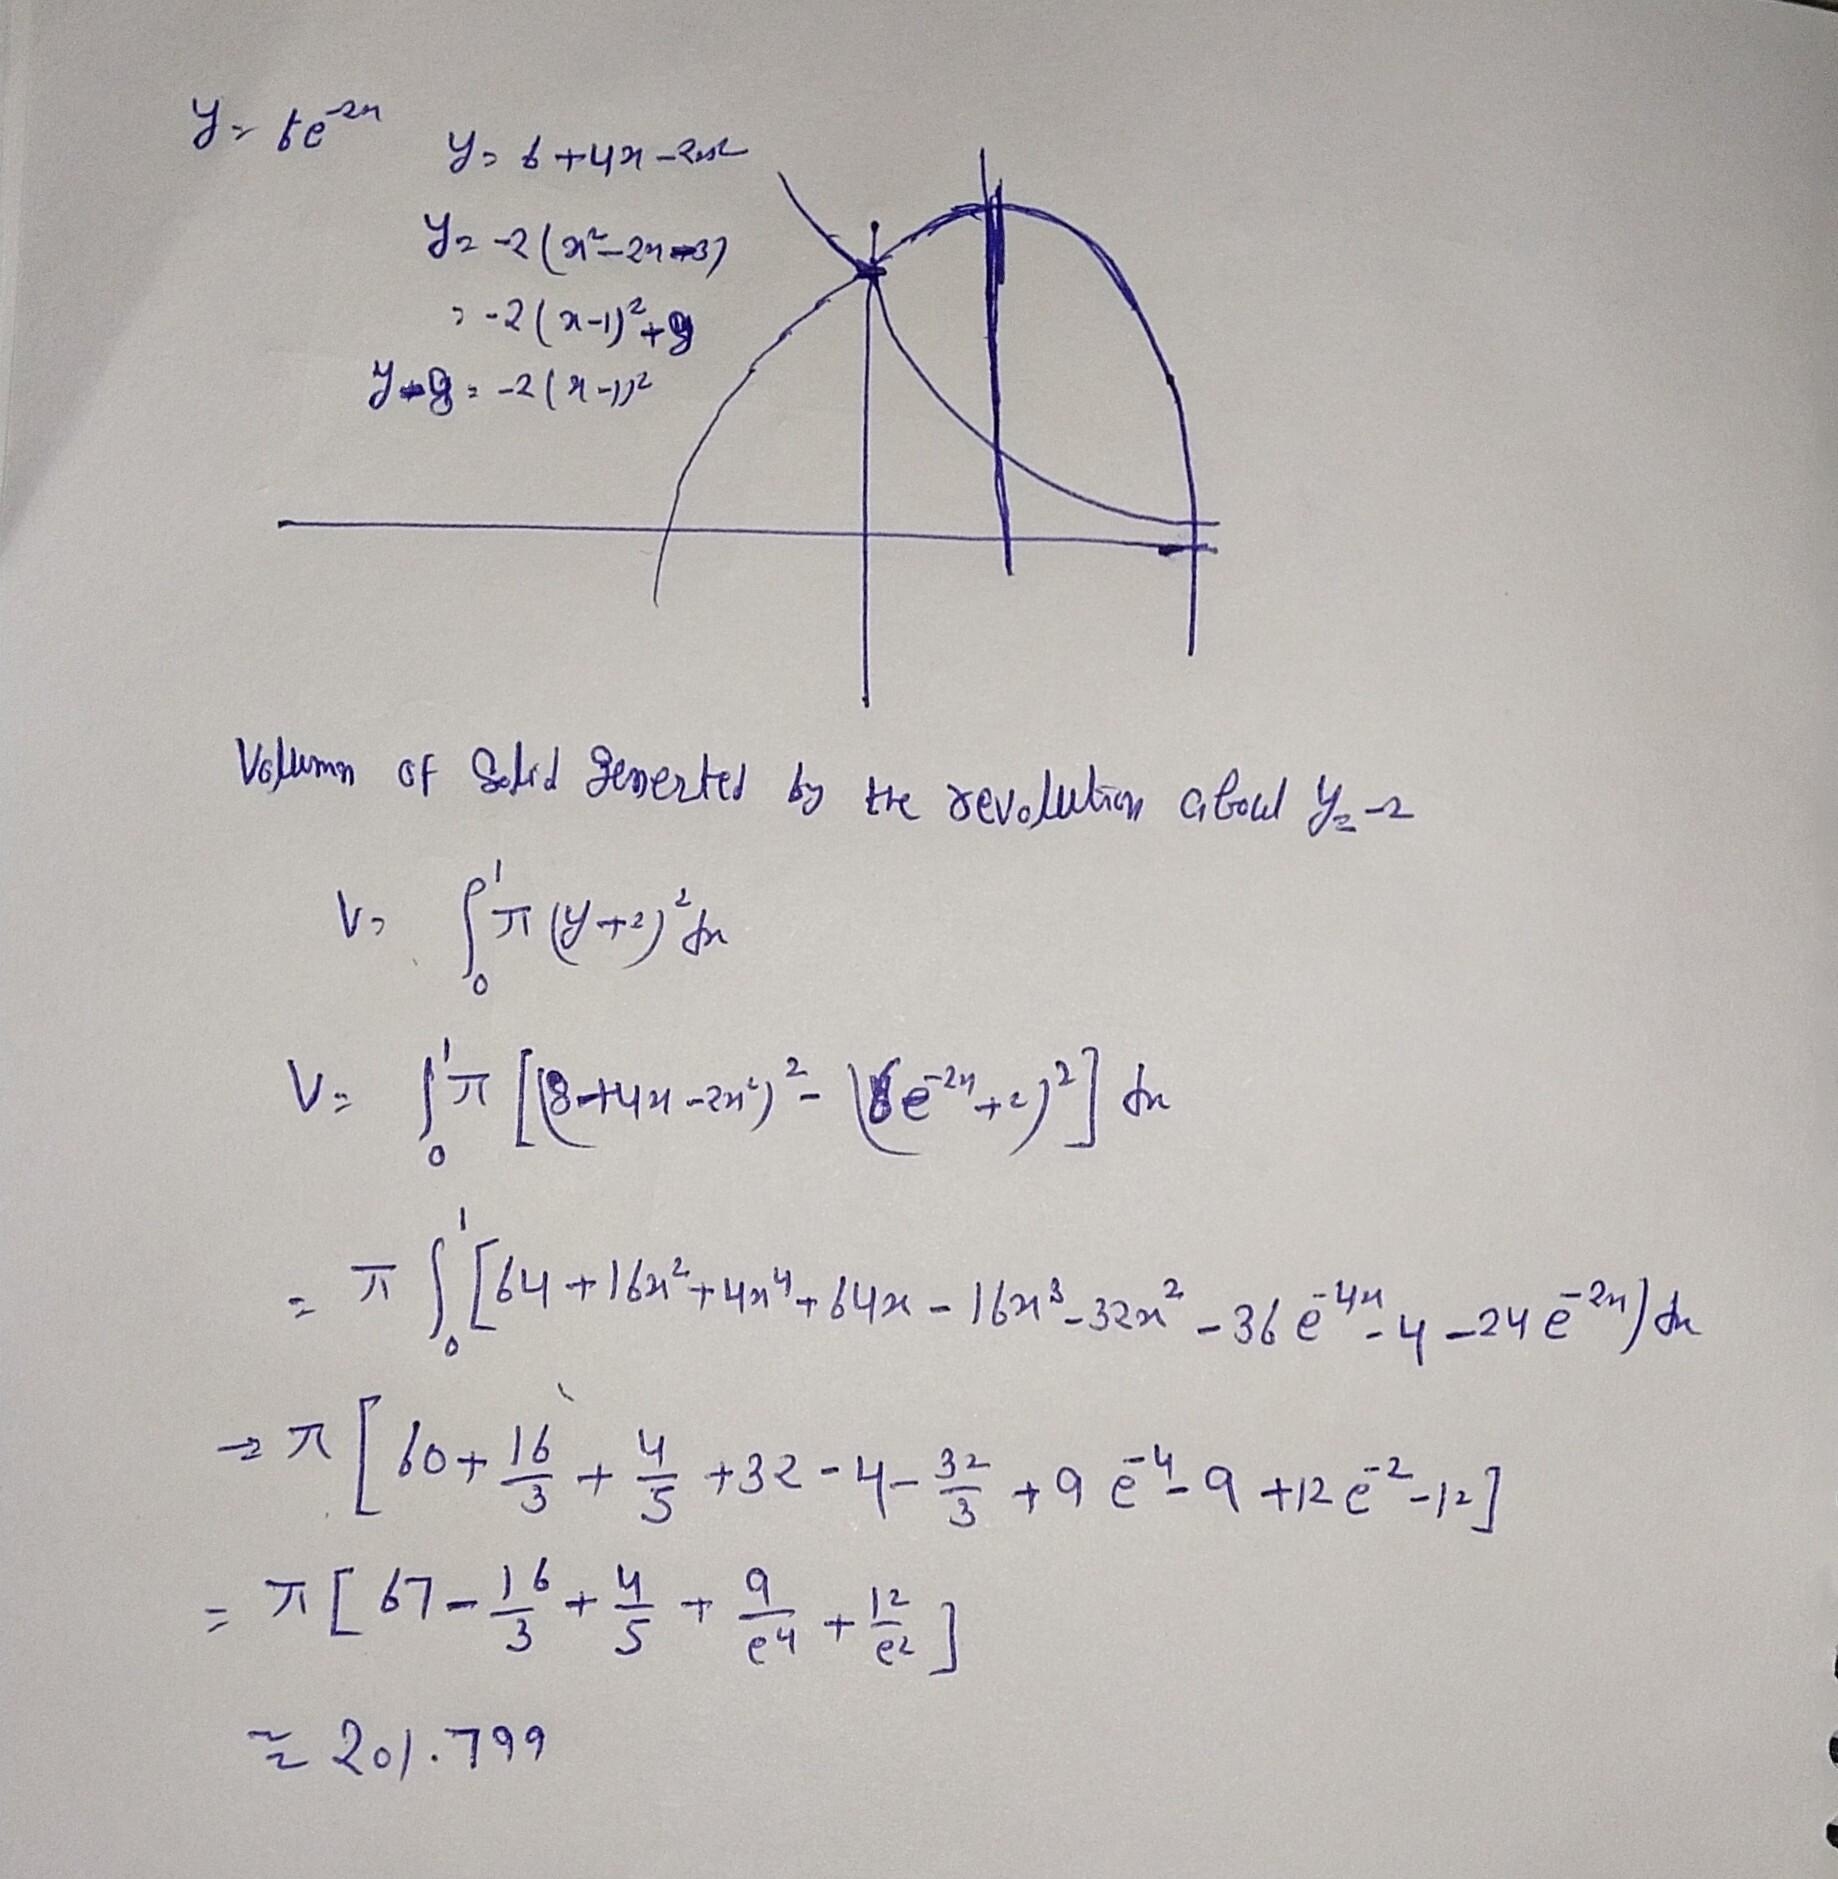 y = 6e^{-2x}
y = 6 + 4x - 2x²
y = -2(x² - 2x - 3)
= -2(x-1)² + 8
y - 8 = -2(x-1)²
Volumn of Solid generted by the revolution about y = -2
V = ∫₀¹ π (y+2)² dx
V = ∫₀¹ π [(8+4x-2x²)² - (6e^{-2x}+2)²] dx
= π ∫₀¹ [64 + 16x² + 4x⁴ + 64x - 16x³ - 32x² - 36e^{-4x} - 4 - 24e^{-2x}) dx
→ π [60 + 16/3 + 4/5 + 32 - 4 - 32/3 + 9e^{-4} - 9 + 12e^{-2} - 12]
= π [67 - 16/3 + 4/5 + 9/e⁴ + 12/e²]
≈ 201.799